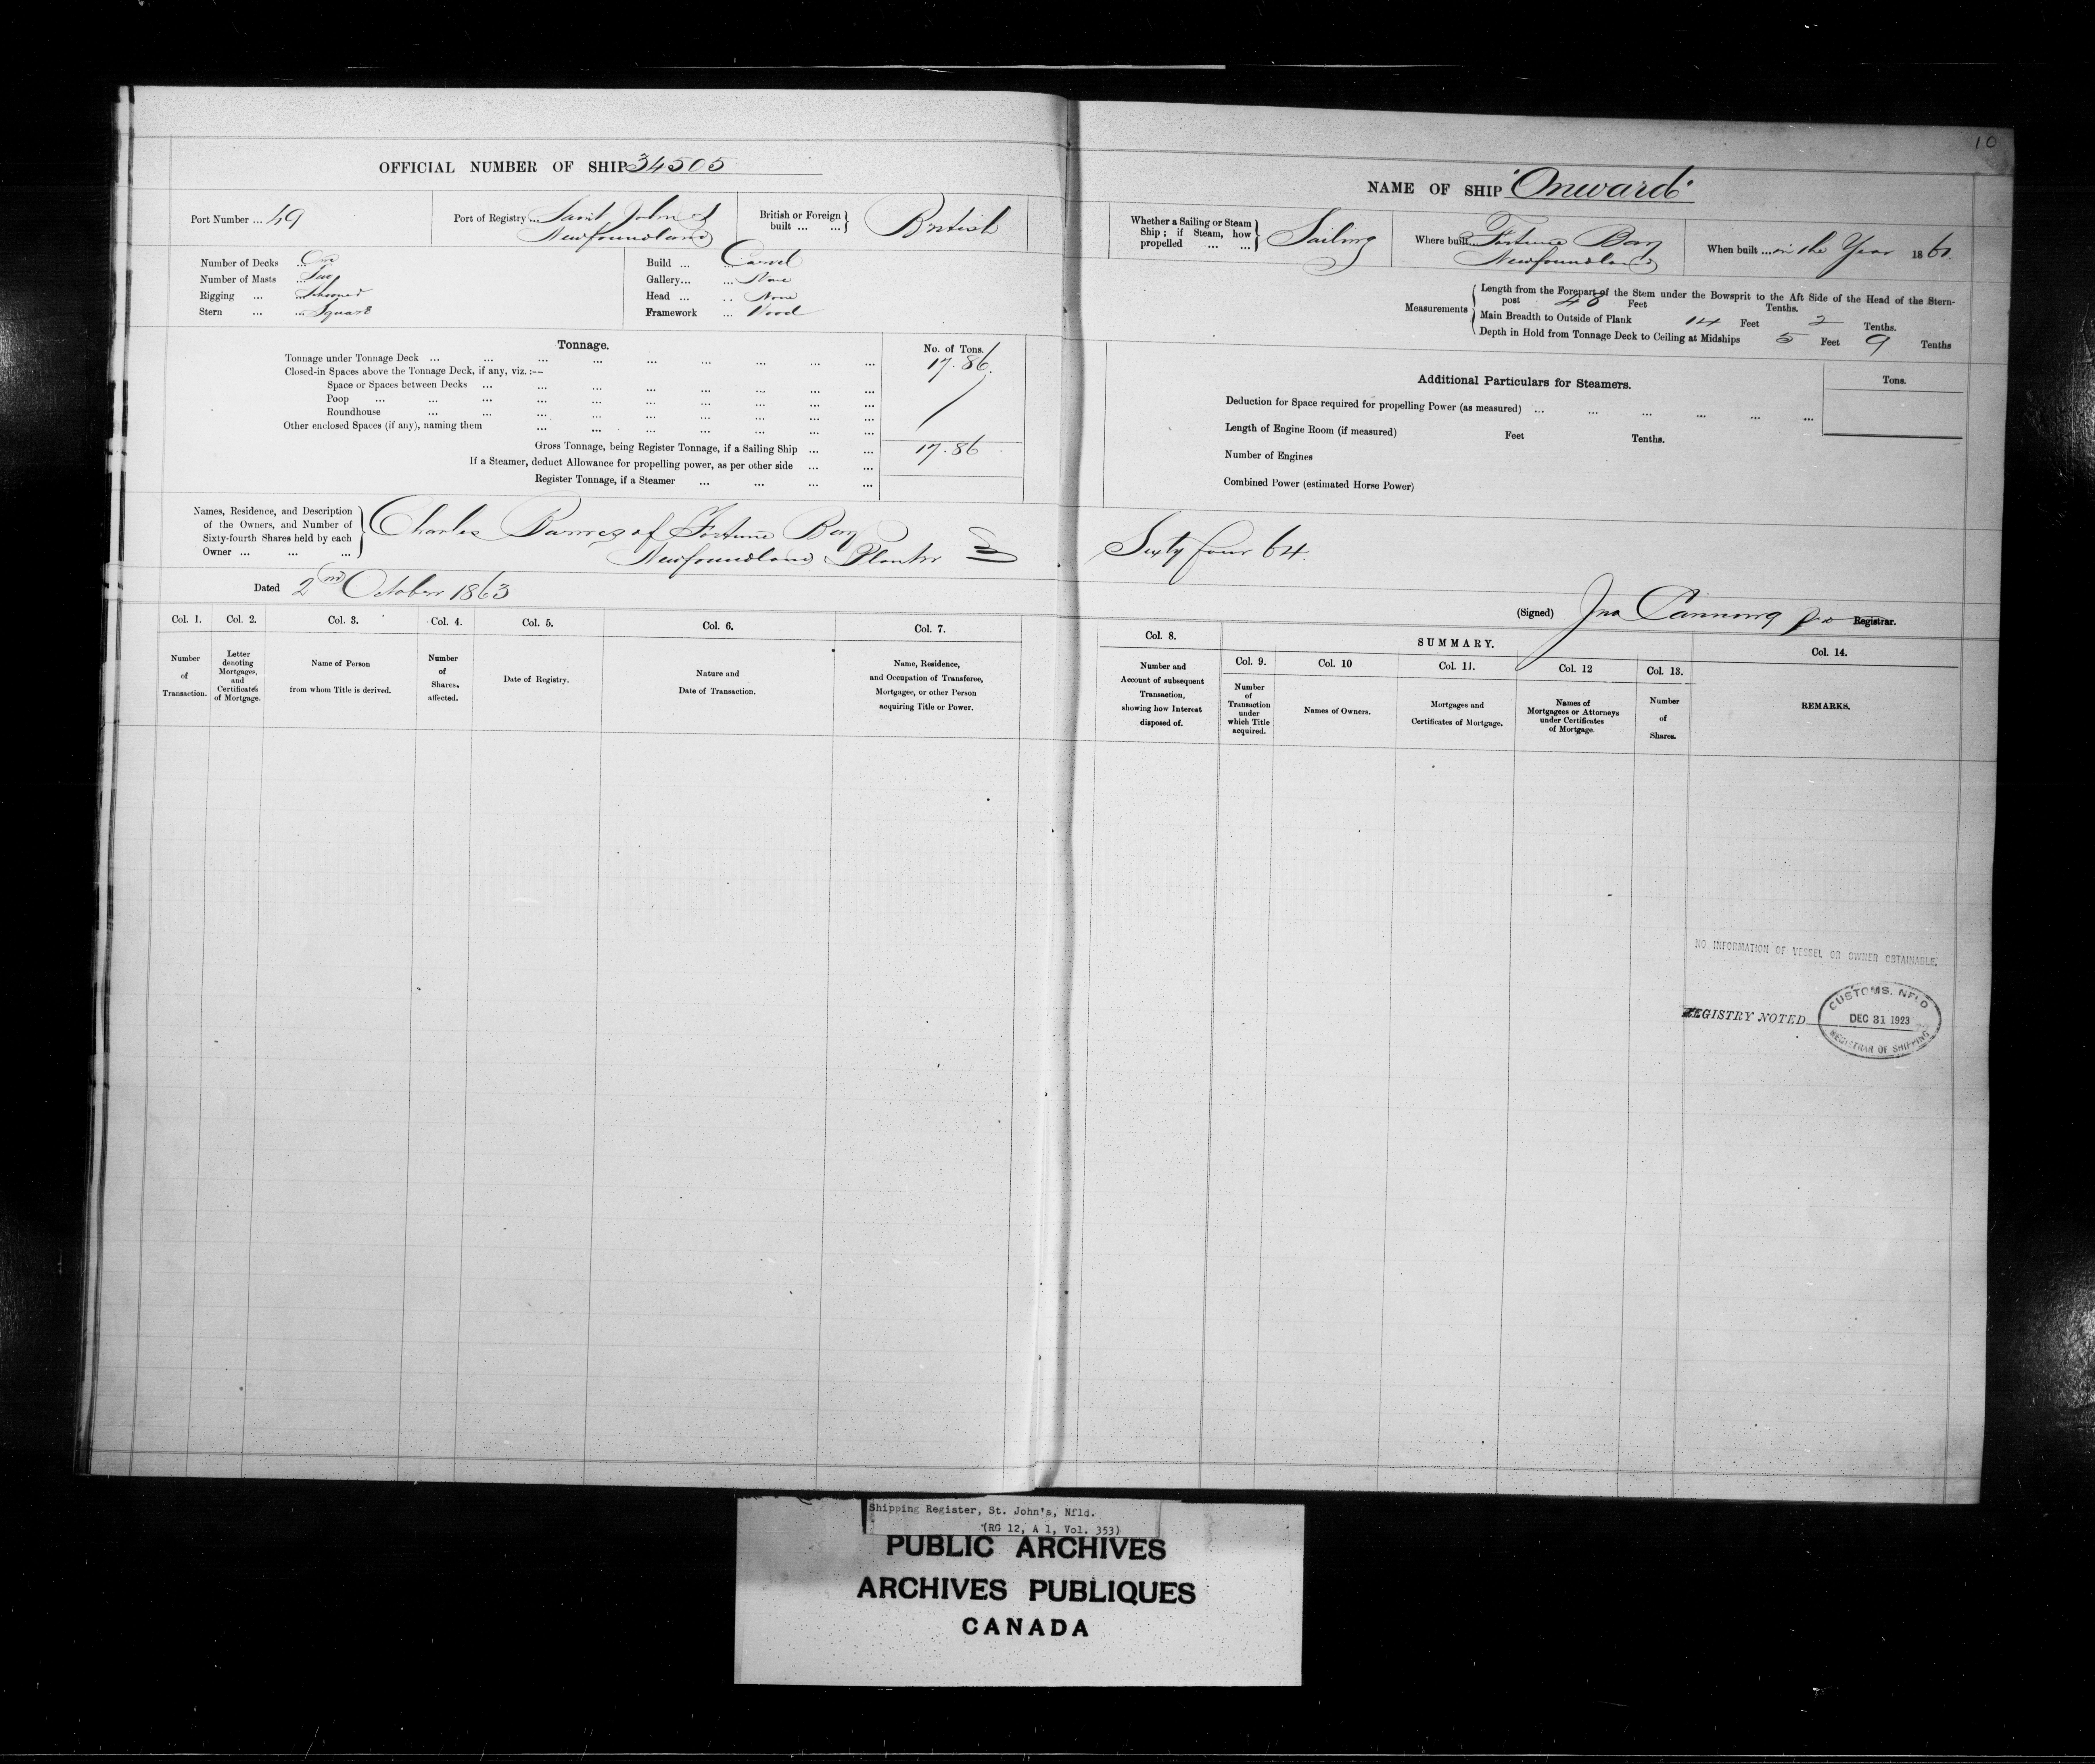 10
OFFICIAL NUMBER OF SHIP 34505
Port Number ... 49
Port of Registry ... Saint John's
Newfoundland
British or Foreign built ... ... British
Number of Decks ... One
Number of Masts ... Two
Rigging ... Schooner
Stern ... ... Square
Build ... Carvel
Gallery... ... None
Head ... .. None
Framework ... Wood
Tonnage.
No. of Tons.
Tonnage under Tonnage Deck ... ... ... ... ... ... ... ... ... 17.86
Closed-in Spaces above the Tonnage Deck, if any, viz. :--
Space or Spaces between Decks ... ... ... ... ... ... ... ...
Poop ... ... ... ... ... ... ... ... ...
Roundhouse ... ... ... ... ... ... ... ... ...
Other enclosed Spaces (if any), naming them ... ... ... ... ... ... ...
Gross Tonnage, being Register Tonnage, if a Sailing Ship ... ... 17.86
If a Steamer, deduct Allowance for propelling power, as per other side ... ...
Register Tonnage, if a Steamer ... ... ... ...
Names, Residence, and Description
of the Owners, and Number of
Sixty-fourth Shares held by each
Owner ... ... ...
Charles of Fortune Bay
Newfoundland Planter
Dated 2nd October 1863
Col. 1. Col. 2. Col. 3. Col. 4. Col. 5. Col. 6. Col. 7.
Number
of
Transaction.
Letter
denoting
Mortgages,
and
Certificates
of Mortgage.
Name of Person
from whom Title is derived.
Number
of
Shares.
affected.
Date of Registry.
Nature and
Date of Transaction.
Name, Residence,
and Occupation of Transferee,
Mortgagee, or other Person
acquiring Title or Power.
NAME OF SHIP "Onward"
Whether a Sailing or Steam
Ship ; if Steam, how
propelled ... ...
Sailing
Where built... Fortune Bay
Newfoundland
When built ... in the Year 1861.
Measurements
Length from the Forepart of the Stem under the Bowsprit to the Aft Side of the Head of the Stern-
post Feet Tenths.
Main Breadth to Outside of Plank 14 Feet 2 Tenths.
Depth in Hold from Tonnage Deck to Ceiling at Midships 5 Feet 9 Tenths
Additional Particulars for Steamers.
Tons.
Deduction for Space required for propelling Power (as measured) ... ... ... ... ... ...
Length of Engine Room (if measured) Feet Tenths.
Number of Engines
Combined Power (estimated Horse Power)
Sixty four 64.
(Signed) Jno Canning Registrar.
Col. 8.
SUMMARY.
Col. 14.
Col. 9. Col. 10 Col. 11. Col. 12 Col. 13.
Number and
Account of subsequent
Transaction,
showing how Interest
disposed of.
Number
of
Transaction
under
which Title
acquired.
Names of Owners.
Mortgages and
Certificates of Mortgage.
Names of
Mortgagees or Attorneys
under Certificates
of Mortgage.
Number
of
Shares.
REMARKS.
NO INFORMATION OF VESSEL OR OWNER OBTAINABLE.
REGISTRY NOTED
CUSTOMS. NFLD
DEC 31 1923
REGISTRAR OF SHIPPING
Shipping Register, St. John's, Nfld.
(RG 12, A 1, Vol. 353)
PUBLIC ARCHIVES
ARCHIVES PUBLIQUES
CANADA